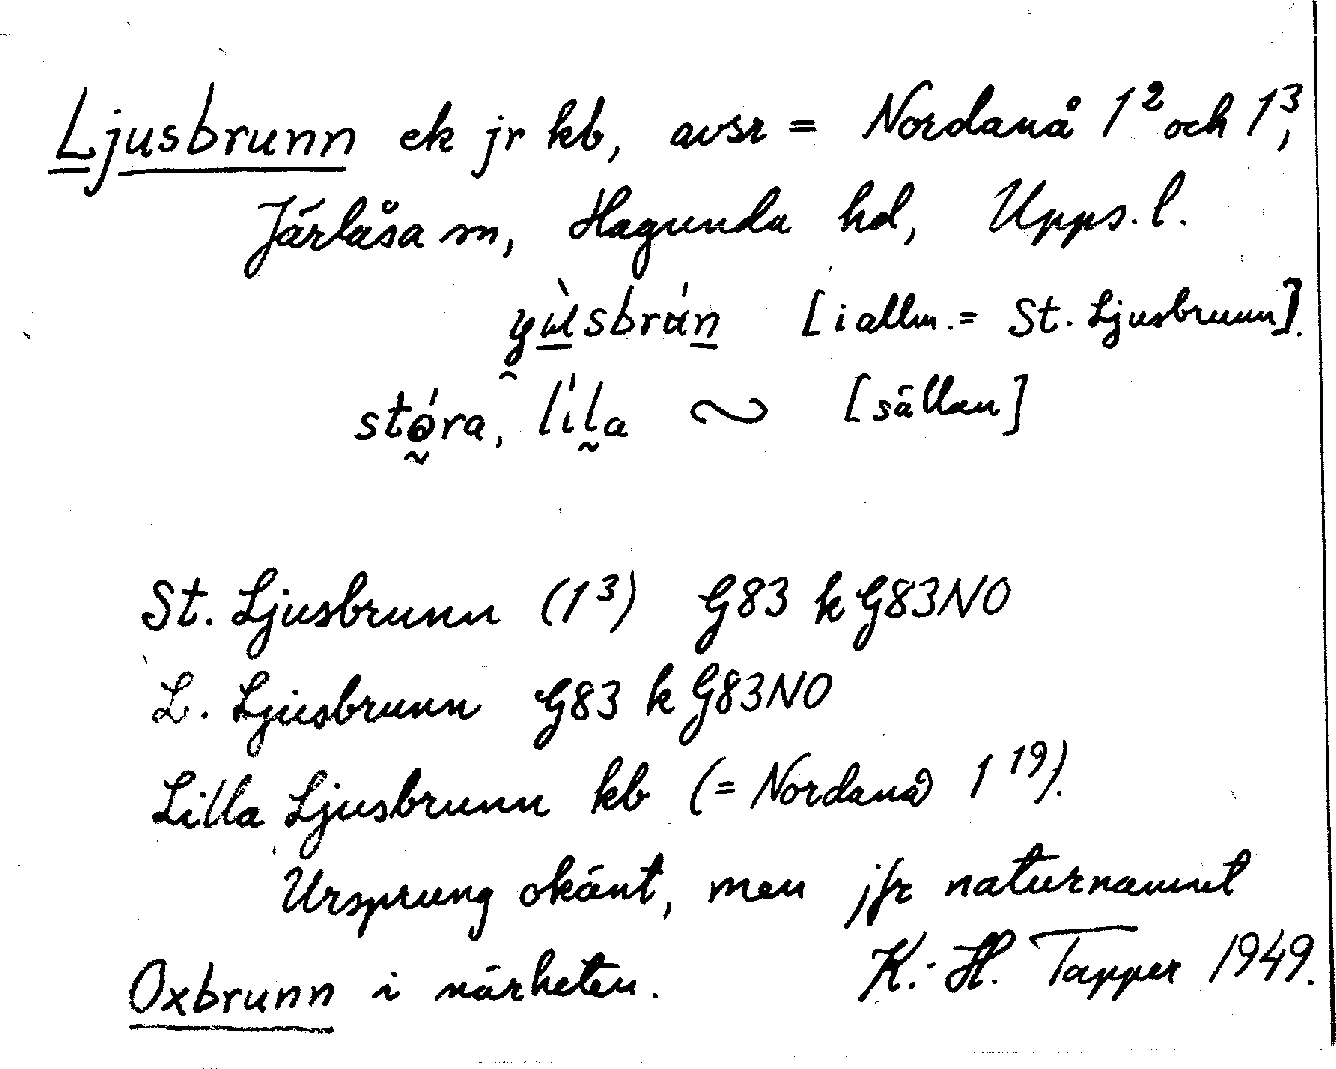 Ljusbrunn ek jr kb, avsr = Nordanå 1² och 1³,
Järlåsa sn, Hagunda hd, Upps. l.
[i allm. = St. Ljusbrunn].
stóra, líla ~ [sällan]
St. Ljusbrunn (1³) G83 k G83NO
L. Ljusbrunn G83 k G83NO
Lilla Ljusbrunn kb (= Nordanå 1¹⁹).
Ursprung okänt, men jfr naturnamnet
Oxbrunn i närheten. K.-H. Tapper 1949.